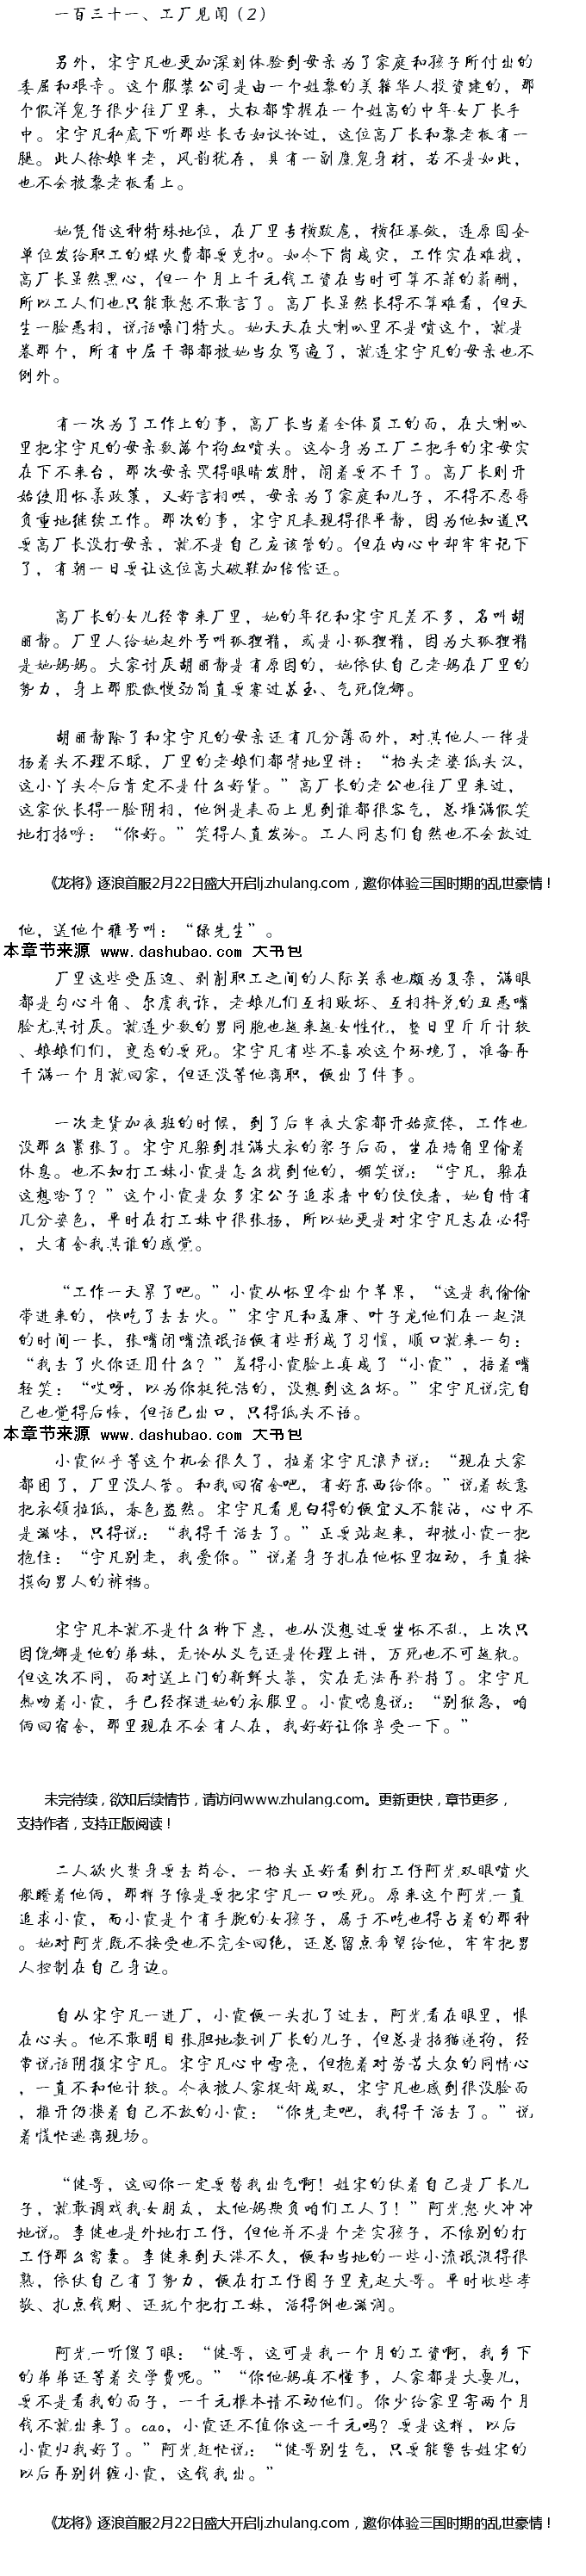 一百三十一、工厂见闻（2）
另外，宋宇凡也更加深刻体验到母亲为了家庭和孩子所付出的
委屈和艰辛。这个服装公司是由一个姓黎的美籍华人投资建的，那
个假洋鬼子很少往厂里来，大权都掌握在一个姓高的中年女厂长手
中。宋宇凡私底下听那些长舌妇议论过，这位高厂长和黎老板有一
腿。此人徐娘半老，风韵犹存，具有一副魔鬼身材，若不是如此，
也不会被黎老板看上。
她凭借这种特殊地位，在厂里专横跋扈，横征暴敛，连原国企
单位发给职工的煤火费都要克扣。如今下岗成灾，工作实在难找，
高厂长虽然黑心，但一个月上千元钱工资在当时可算不菲的薪酬，
所以工人们也只能敢怒不敢言了。高厂长虽然长得不算难看，但天
生一脸恶相，说话嗓门特大。她天天在大喇叭里不是喷这个，就是
卷那个，所有中层干部都被她当众骂遍了，就连宋宇凡的母亲也不
例外。
有一次为了工作上的事，高厂长当着全体员工的面，在大喇叭
里把宋宇凡的母亲数落个狗血喷头。这令身为工厂二把手的宋母实
在下不来台，那次母亲哭得眼睛发肿，闹着要不干了。高厂长则开
始使用怀柔政策，又好言相哄，母亲为了家庭和儿子，不得不忍辱
负重地继续工作。那次的事，宋宇凡表现得很平静，因为他知道只
要高厂长没打母亲，就不是自己应该管的。但在内心中却牢牢记下
了，有朝一日要让这位高大破鞋加倍偿还。
高厂长的女儿经常来厂里，她的年纪和宋宇凡差不多，名叫胡
丽静。厂里人给她起外号叫狐狸精，或是小狐狸精，因为大狐狸精
是她妈妈。大家讨厌胡丽静是有原因的，她依仗自己老妈在厂里的
势力，身上那股傲慢劲简直要赛过苏玉、气死倪娜。
胡丽静除了和宋宇凡的母亲还有几分薄面外，对其他人一律是
扬着头不理不睬，厂里的老娘们都背地里讲：“抬头老婆低头汉，
这小丫头今后肯定不是什么好货。”高厂长的老公也往厂里来过，
这家伙长得一脸阴相，他倒是表面上见到谁都很客气，总堆满假笑
地打招呼：“你好。”笑得人直发冷。工人同志们自然也不会放过
《龙将》逐浪首服2月22日盛大开启lj.zhulang.com，邀你体验三国时期的乱世豪情！
他，送他个雅号叫：“绿先生”。
本章节来源 www.dashubao.com 大书包
厂里这些受压迫、剥削职工之间的人际关系也颇为复杂，满眼
都是勾心斗角、尔虞我诈，老娘儿们互相败坏、互相挤兑的丑恶嘴
脸尤其讨厌。就连少数的男同胞也越来越女性化，整日里斤斤计较
、娘娘们们，变态的要死。宋宇凡有些不喜欢这个环境了，准备再
干满一个月就回家，但还没等他离职，便出了件事。
一次走货加夜班的时候，到了后半夜大家都开始疲倦，工作也
没那么紧张了。宋宇凡躲到挂满大衣的架子后面，坐在墙角里偷着
休息。也不知打工妹小霞是怎么找到他的，媚笑说：“宇凡，躲在
这想啥了？”这个小霞是众多宋公子追求者中的佼佼者，她自恃有
几分姿色，平时在打工妹中很张扬，所以她更是对宋宇凡志在必得
，大有舍我其谁的感觉。
“工作一天累了吧。”小霞从怀里拿出个苹果，“这是我偷偷
带进来的，快吃了去去火。”宋宇凡和孟康、叶子龙他们在一起混
的时间一长，张嘴闭嘴流氓话便有些形成了习惯，顺口就来一句：
“我去了火你还用什么？”羞得小霞脸上真成了“小霞”，捂着嘴
轻笑：“哎呀，以为你挺纯洁的，没想到这么坏。”宋宇凡说完自
己也觉得后悔，但话已出口，只得低头不语。
本章节来源 www.dashubao.com 大书包
小霞似乎等这个机会很久了，拉着宋宇凡浪声说：“现在大家
都困了，厂里没人管。和我回宿舍吧，有好东西给你。”说着故意
把衣领拉低，春色盎然。宋宇凡看见白得的便宜又不能沾，心中不
是滋味，只得说：“我得干活去了。”正要站起来，却被小霞一把
抱住：“宇凡别走，我爱你。”说着身子扎在他怀里扭动，手直接
摸向男人的裤裆。
宋宇凡本就不是什么柳下惠，也从没想过要坐怀不乱，上次只
因倪娜是他的弟妹，无论从义气还是伦理上讲，万死也不可越轨。
但这次不同，面对送上门的新鲜大菜，实在无法再矜持了。宋宇凡
热吻着小霞，手已经探进她的衣服里。小霞喘息说：“别猴急，咱
俩回宿舍，那里现在不会有人在，我好好让你享受一下。”
未完待续，欲知后续情节，请访问www.zhulang.com。更新更快，章节更多，
支持作者，支持正版阅读！
二人欲火焚身要去苟合，一抬头正好看到打工仔阿光双眼喷火
般瞪着他俩，那样子像是要把宋宇凡一口咬死。原来这个阿光一直
追求小霞，而小霞是个有手腕的女孩子，属于不吃也得占着的那种
。她对阿光既不接受也不完全回绝，还总留点希望给他，牢牢把男
人控制在自己身边。
自从宋宇凡一进厂，小霞便一头扎了过去，阿光看在眼里，恨
在心头。他不敢明目张胆地教训厂长的儿子，但总是招猫递狗，经
常说话阴损宋宇凡。宋宇凡心中雪亮，但抱着对劳苦大众的同情心
，一直不和他计较。今夜被人家捉奸成双，宋宇凡也感到很没脸面
，推开仍搂着自己不放的小霞：“你先走吧，我得干活去了。”说
着慌忙逃离现场。
“健哥，这回你一定要替我出气啊！姓宋的仗着自己是厂长儿
子，就敢调戏我女朋友，太他妈欺负咱们工人了！”阿光怒火冲冲
地说。李健也是外地打工仔，但他并不是个老实孩子，不像别的打
工仔那么窝囊。李健来到天港不久，便和当地的一些小流氓混得很
熟，依仗自己有了势力，便在打工仔圈子里充起大哥。平时收些孝
敬、扎点钱财、还玩个把打工妹，活得倒也滋润。
阿光一听傻了眼：“健哥，这可是我一个月的工资啊，我乡下
的弟弟还等着交学费呢。”“你他妈真不懂事，人家都是大耍儿，
要不是看我的面子，一千元根本请不动他们。你少给家里寄两个月
钱不就出来了。cao，小霞还不值你这一千元吗？要是这样，以后
小霞归我好了。”阿光赶忙说：“健哥别生气，只要能警告姓宋的
以后再别纠缠小霞，这钱我出。”
《龙将》逐浪首服2月22日盛大开启lj.zhulang.com，邀你体验三国时期的乱世豪情！